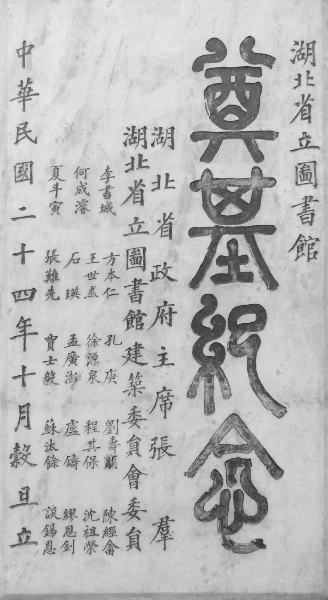 湖北省立圖書館
奠基紀念
湖北省政府主席張群
湖北省立圖書館建築委員會委員
李書城 方本仁 孔庚 劉壽朋 陳經畬
何成濬 王世杰 徐源泉 程其保 沈祖榮
石瑛 孟廣澎 盧鑄 繆恩釗
夏斗寅 張難先 賈士毅 蘇汰餘 談錫恩
中華民國二十四年十月穀旦立